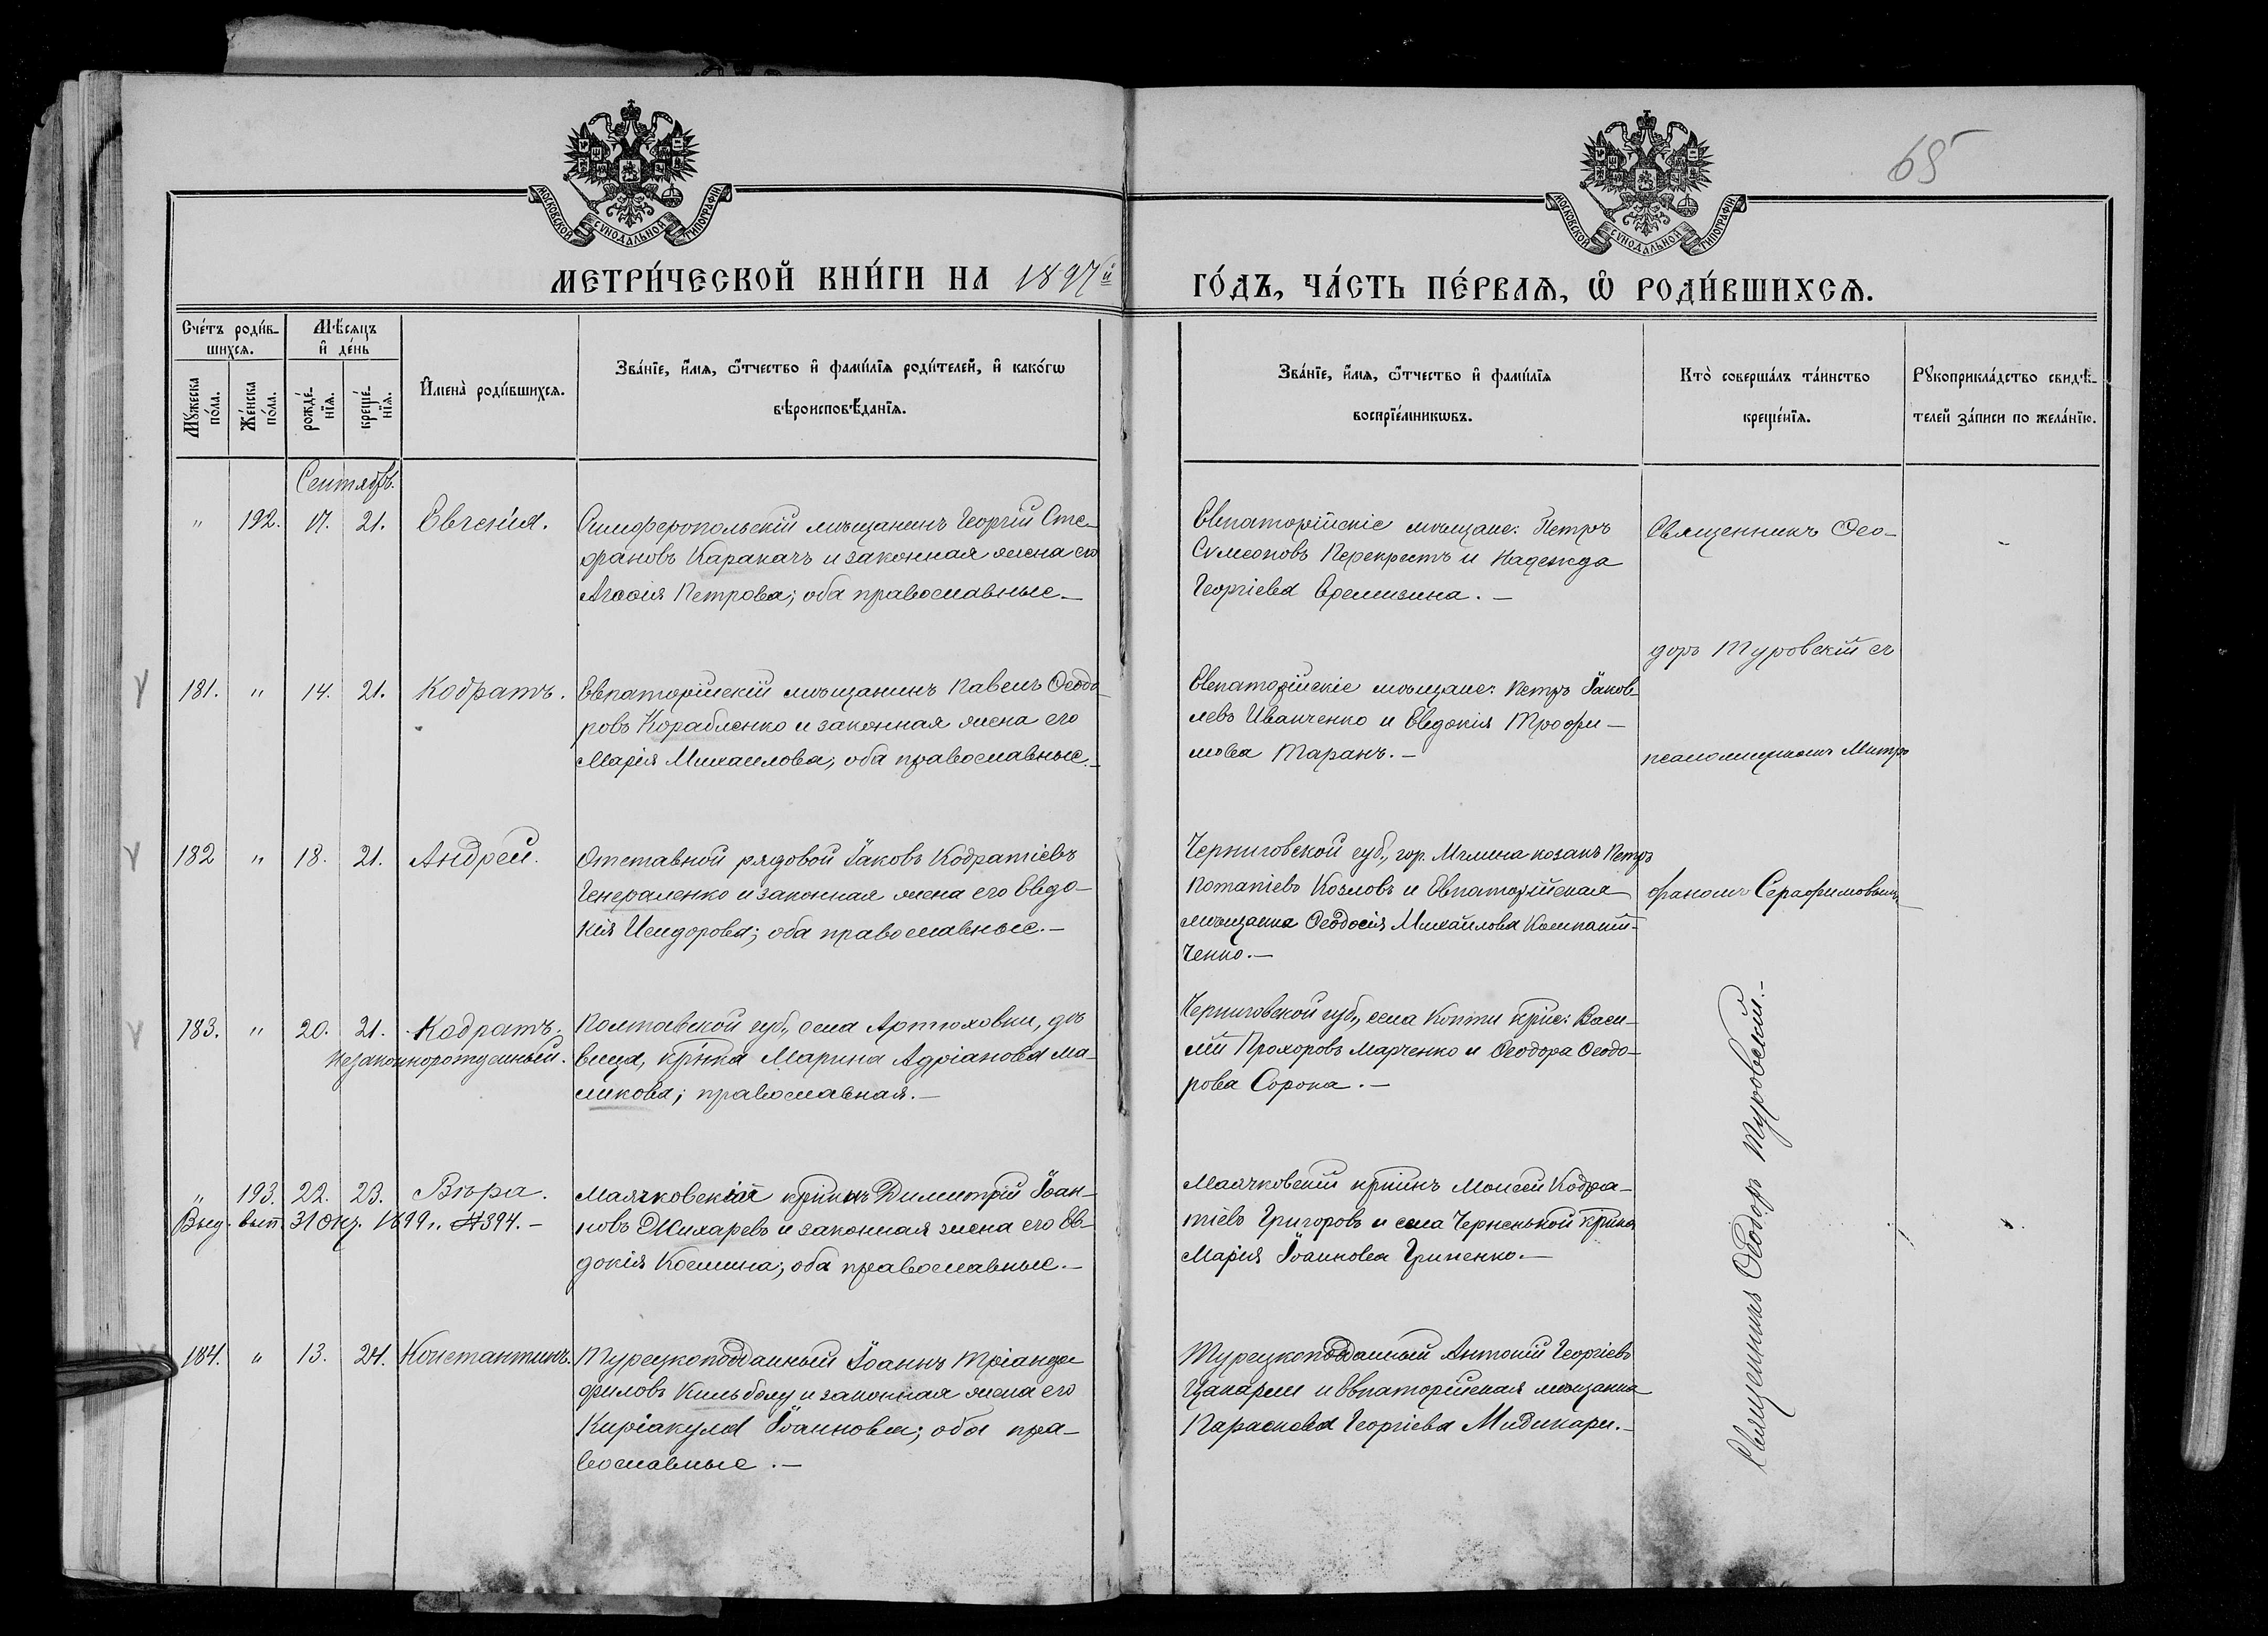 65
МОСКОВСКОЙ СУНОДАЛЬНОЙ ТИПОГРАФІИ
МОСКОВСКОЙ СУНОДАЛЬНОЙ ТИПОГРАФІИ
МЕТРИ́ЧЕСКОЙ КНИ́ГИ НА 1897й
ГО́ДЪ, ЧА́СТЬ ПЕ́РВАѦ, Ѡ҆ РОДИ́ВШИХСѦ.
Сче́тъ роди́в-
шихсѧ.
Мꙋ́жеска по́ла.
Же́нска по́ла.
Мѣ́сяцъ
и҆ де́нь
рожде́-нїѧ.
креще́-нїѧ.
И҆мена̀ роди́вшихсѧ.
Зва́нїе, и҆́мѧ, ѻ҆́тчество и҆ фами́лїѧ роди́телей, и҆ како́гѡ
вѣроисповѣ́данїѧ.
Зва́нїе, и҆́мѧ, ѻ҆́тчество и҆ фами́лїѧ
воспрїе́мникѡвъ.
Кто̀ соверша́лъ та́инство
креще́нїѧ.
Рꙋкоприкла́дство свидѣ́-
телей за́писи по жела́нїю.
Сентябрь.
" 192. 17. 21. Евгенія.
Симферопольскій мѣщанинъ Георгій Сте-
фановъ Каракачъ и законная жена его
Агаѳія Петрова; оба православные.—
Евпаторійскіе мѣщане: Петръ
Симеоновъ Перекрестъ и Надежда
Георгіева
181. " 14. 21. Кодратъ.
Евпаторійскій мѣщанинъ Павелъ Ѳеодо-
ровъ Корабленко и законная жена его
Марія Михаилова; оба православные.—
Евпаторійскіе мѣщане: Петръ Іаков-
левъ Иванченко и Евдокія Трофи-
мова Таранъ.—
182 " 18. 21. Андрей.
Отставной рядовой Іаковъ Кодратіевъ
Генераленко и законная жена его Евдо-
кія Исидорова; оба православные.—
Черниговской губ., гор. Мглина козакъ Петръ
Потапіевъ Козловъ и Евпаторійская
мѣщанка Ѳеодосія Михаилова Компаній-
ченко.—
183. " 20. 21. Кодратъ.
незаконнорожденный.
Полтавской губ., села Артюховки, дѣ-
вица, кр-нка Марина Адріанова Ма-
сликова; православная.—
Черниговской губ., села Копти крис: Васи-
лій Прохоровъ Марченко и Ѳеодора Ѳеодо-
рова Сорока.—
" 193. 22. 23. Вѣра.
Выд. вып. 31 окт. 1899г. № 394.—
Маячковскій кр-инъ Димитрій Іоан-
новъ Жихаревъ и законная жена его Ев-
докія Космина; оба православные.—
Маячковскій кр-инъ Моисей Кодра-
тіевъ Григоровъ и села Черненькой кр-нка
Марія Іоаннова Гриненко.—
184. " 13. 24. Константинъ.
Турецкоподданный Іоаннъ Тріанда-
филовъ Кильболу и законная жена его
Киріакула Іоаннова; оба пра-
вославные.—
Турецкоподданный Антоній Георгіевъ
Цакарли и Евпаторійская мѣщанка
Параскева Георгіева Мидикари.—
Священникъ Ѳео-
доръ Туровскій съ
псаломщикомъ Митро
фаномъ Серафимовымъ
Священникъ Ѳеодоръ Туровскій.—